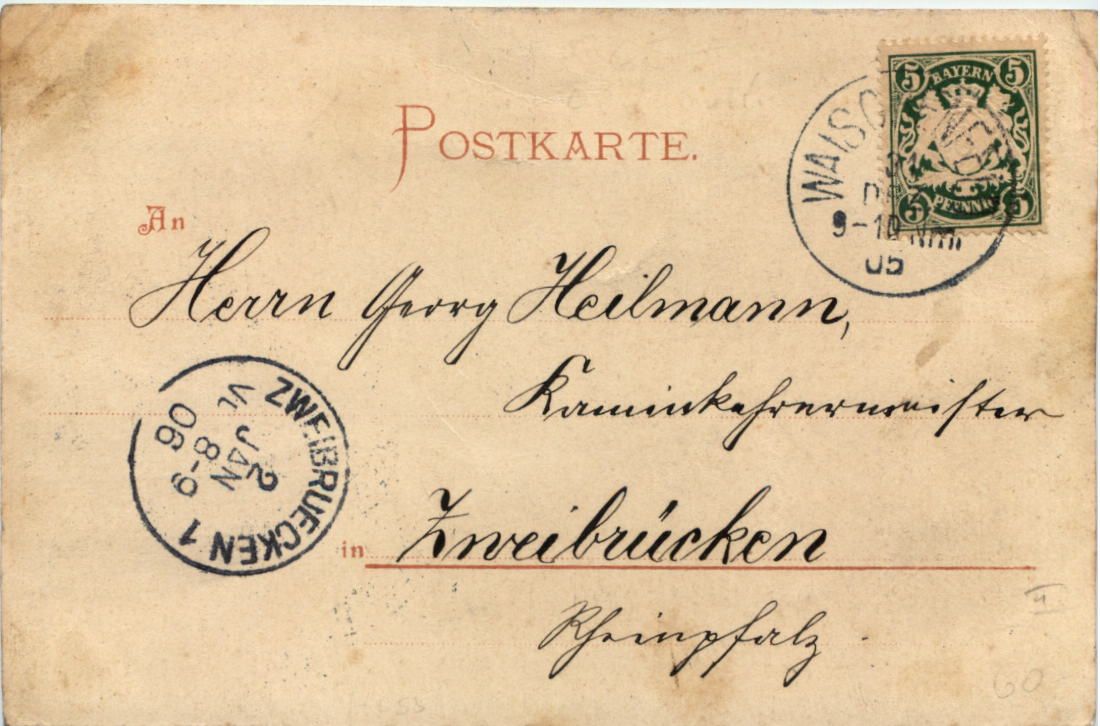 POSTKARTE.
5 BAYERN 5
5 PFENNIG 5
WAISCHENFELD
31
DEZ
9-10 Nm
05
An
Herrn Georg Heilmann,
Kaminkehrermeister
ZWEIBRUECKEN 1
VL
2
JAN
8-9
06
in Zweibrücken
Rheinpfalz
60